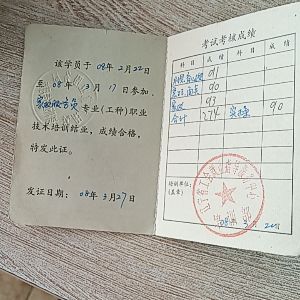 该学员于 08年 2月 22日
至 08年 3月 17日参加
家政服务员 专业(工种)职业
技术培训结业，成绩合格，
特发此证。
发证日期： 08年 3月 27日
考试考核成绩
科目 成绩 科目 成绩
91
90
家政 93
合计 274 实操 90
培训单位：
(盖章)